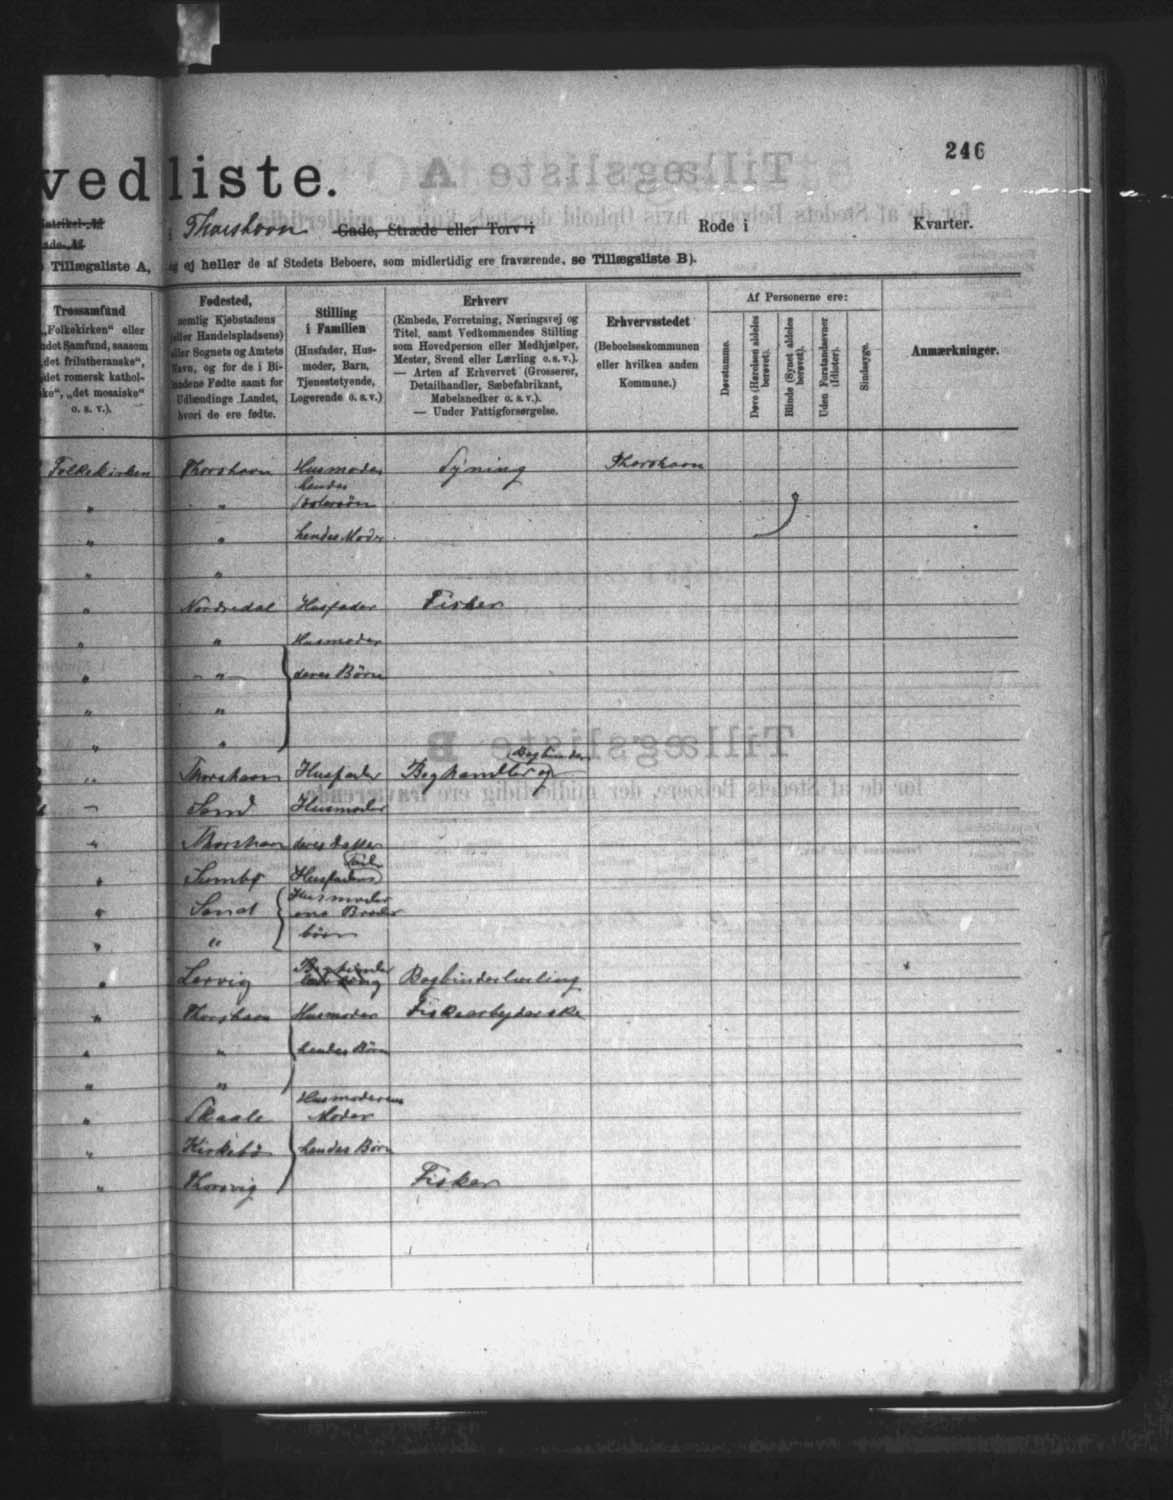 246
vedliste.
Matrikel-№
i Thorshavn Gade, Stræde eller Torv i Rode i Kvarter.
Tillægsliste A, og ej heller de af Stedets Beboere, som midlertidig ere fraværende, se Tillægsliste B).
Trossamfund
„Folkekirken“ eller
det Samfund, saasom
„det frilutheranske“,
det romersk kathol-
ske“, „det mosaiske“
o. s. v.).
Fødested,
nemlig Kjøbstadens
(eller Handelspladsens)
eller Sognets og Amtets
Navn, og for de i Bi-
landene Fødte samt for
Udlændinge Landet,
hvori de ere fødte.
Stilling
i Familien
(Husfader, Hus-
moder, Barn,
Tjenestetyende,
Logerende o. s. v.)
Erhverv
(Embede, Forretning, Næringsvej og
Titel, samt Vedkommendes Stilling
som Hovedperson eller Medhjælper,
Mester, Svend eller Lærling o. s. v.).
— Arten af Erhvervet (Grosserer,
Detailhandler, Sæbefabrikant,
Møbelsnedker o. s. v.).
— Under Fattigforsørgelse.
Erhvervsstedet
(Beboelseskommunen
eller hvilken anden
Kommune.)
Af Personerne ere:
Døvstumme.
Døve (Hørelsen aldeles
berøvet).
Blinde (Synet aldeles
berøvet).
Uden Forstandsevner
(Idioter).
Sindssyge.
Anmærkninger.
Folkekirken Thorshavn Husmoder Syning Thorshavn
" " hendes
Søstersøn
" " hendes Moder
" "
" Nordredal Husfader Fisker
" " Husmoder
" " deres Børn
" "
" "
" Thorshavn Husfader Boghandler og Bogbinder
" Sand Husmoder
" Thorshavn deres Datter
" Sumbø Husfaders
" Sand Husmoder
ens Broder
" " børn
" Lervig Bogbinderlærling
" Thorshavn Husmoder Fiskearbejderske
" " hendes Børn
" "
" Skaale Husmoderens
Moder
" Kirkebø hendes Børn
" Thorsvig Fisker